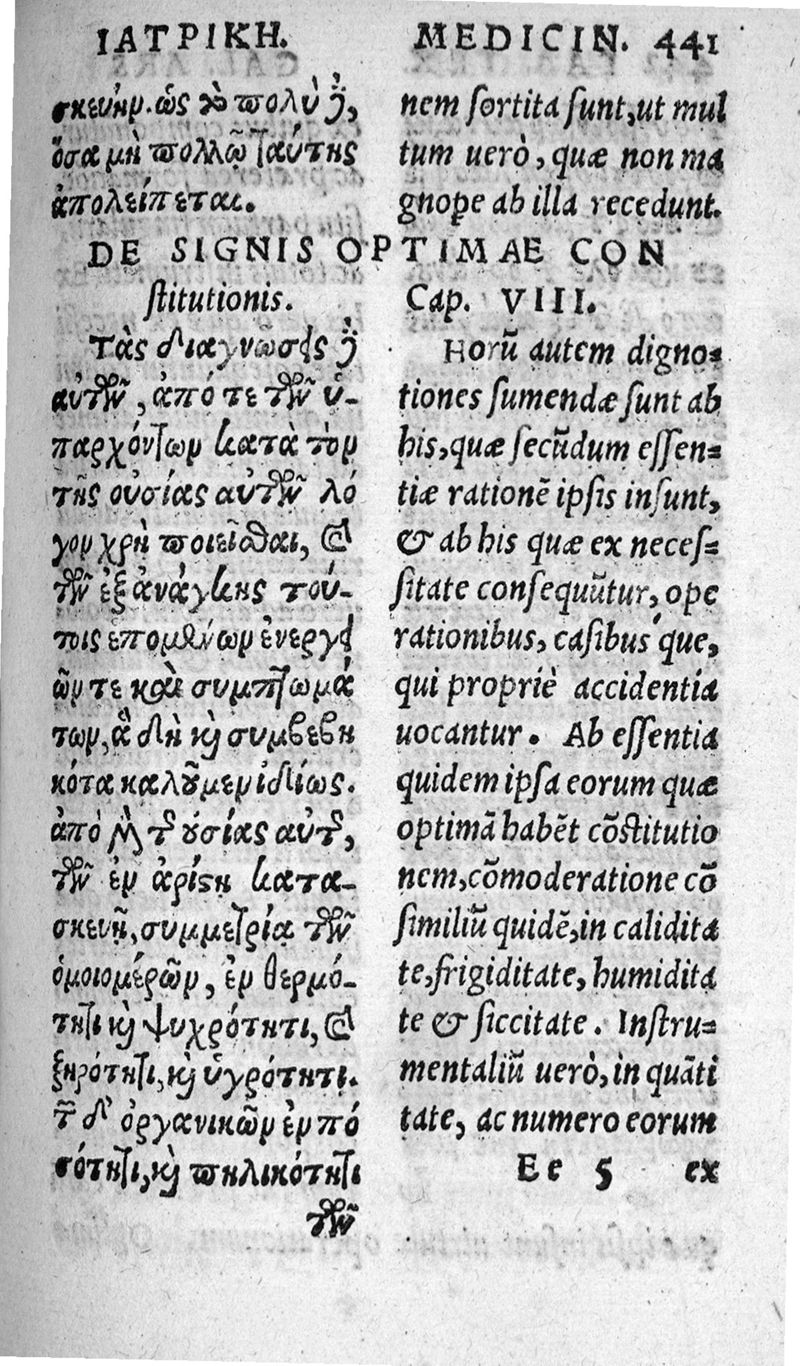 ΙΑΤΡΙΚΗ.
MEDICIN. 441
σκευήν. ὡς τὸ πολὺ δὲ,
ὅσα μὴ πολλῷ ταύτης
ἀπολείπεται.
nem sortita sunt, ut mul
tum uerò, quæ non ma
gnope ab illa recedunt.
DE SIGNIS OPTIMAE CON
stitutionis. Cap. VIII.
Τὰς διαγνώσεις δὲ
αὐτῶν, ἀπό τε τῶν ὑ-
παρχόντων κατὰ τὸν
τῆς οὐσίας αὐτῶν λό
γον χρὴ ποιεῖσθαι, καὶ
τῶν ἐξ ἀνάγκης τού-
τοις ἑπομένων ἐνεργει
ῶν τε καὶ συμπτωμά
των, ἃ δὴ καὶ συμβεβη
κότα καλοῦμεν ἰδίως.
ἀπὸ μὲν τῆς οὐσίας αὐτῆς,
τῶν ἐν ἀρίστῃ κατα-
σκευῇ, συμμετρία τῶν
ὁμοιομέρῶν, ἐν θερμό-
τητι καὶ ψυχρότητι, καὶ
ξηρότητι, καὶ ὑγρότητι.
τῶν δ' ὀργανικῶν ἐν πό
σότητι, καὶ πηλικότητι
τῶν
Horũ autem digno-
tiones sumendæ sunt ab
his, quæ secũdum essen-
tiæ rationẽ ipsis insunt,
& ab his quæ ex neces-
sitate consequũtur, ope
rationibus, casibus'que,
qui propriè accidentia
uocantur. Ab essentia
quidem ipsa eorum quæ
optimã habẽt cõstitutio
nem, cõmoderatione cõ
similiũ quidẽ, in calidita
te, frigiditate, humidita
te & siccitate. Instru-
mentaliũ uerò, in quãti
tate, ac numero eorum
Ee 5 ex